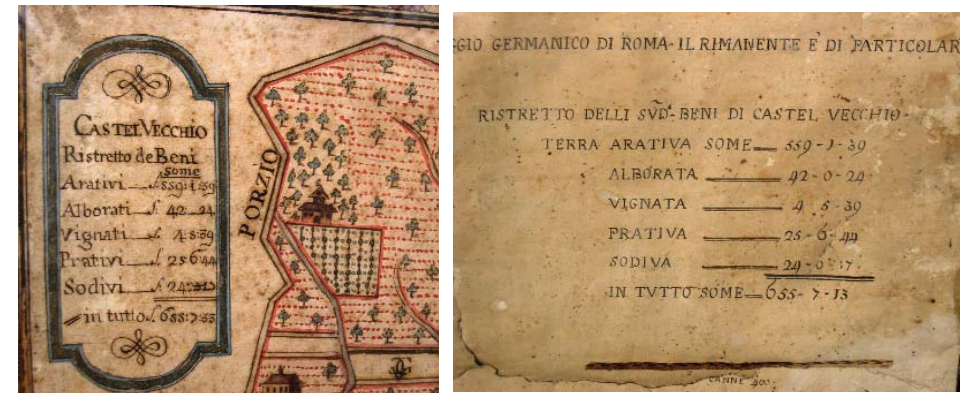 CASTEL VECCHIO
Ristretto de Beni
some
Arativi f. 559:1:39
Alborati f. 42 24
Vignati f.
Prativi f. 25 6 44
Sodivi f.
in tutto f. 655:7:53
PORZIO
GGIO GERMANICO DI ROMA - IL RIMANENTE E DI PARTICOLAR
RISTRETTO DELLI SVD. BENI DI CASTEL VECCHIO.
TERRA ARATIVA SOME 559-1-39
ALBORATA 42-0-24
VIGNATA 4-5-39
PRATIVA 25-6-44
SODIVA 24-0-17
IN TVTTO SOME 655-7-13
CANNE 400